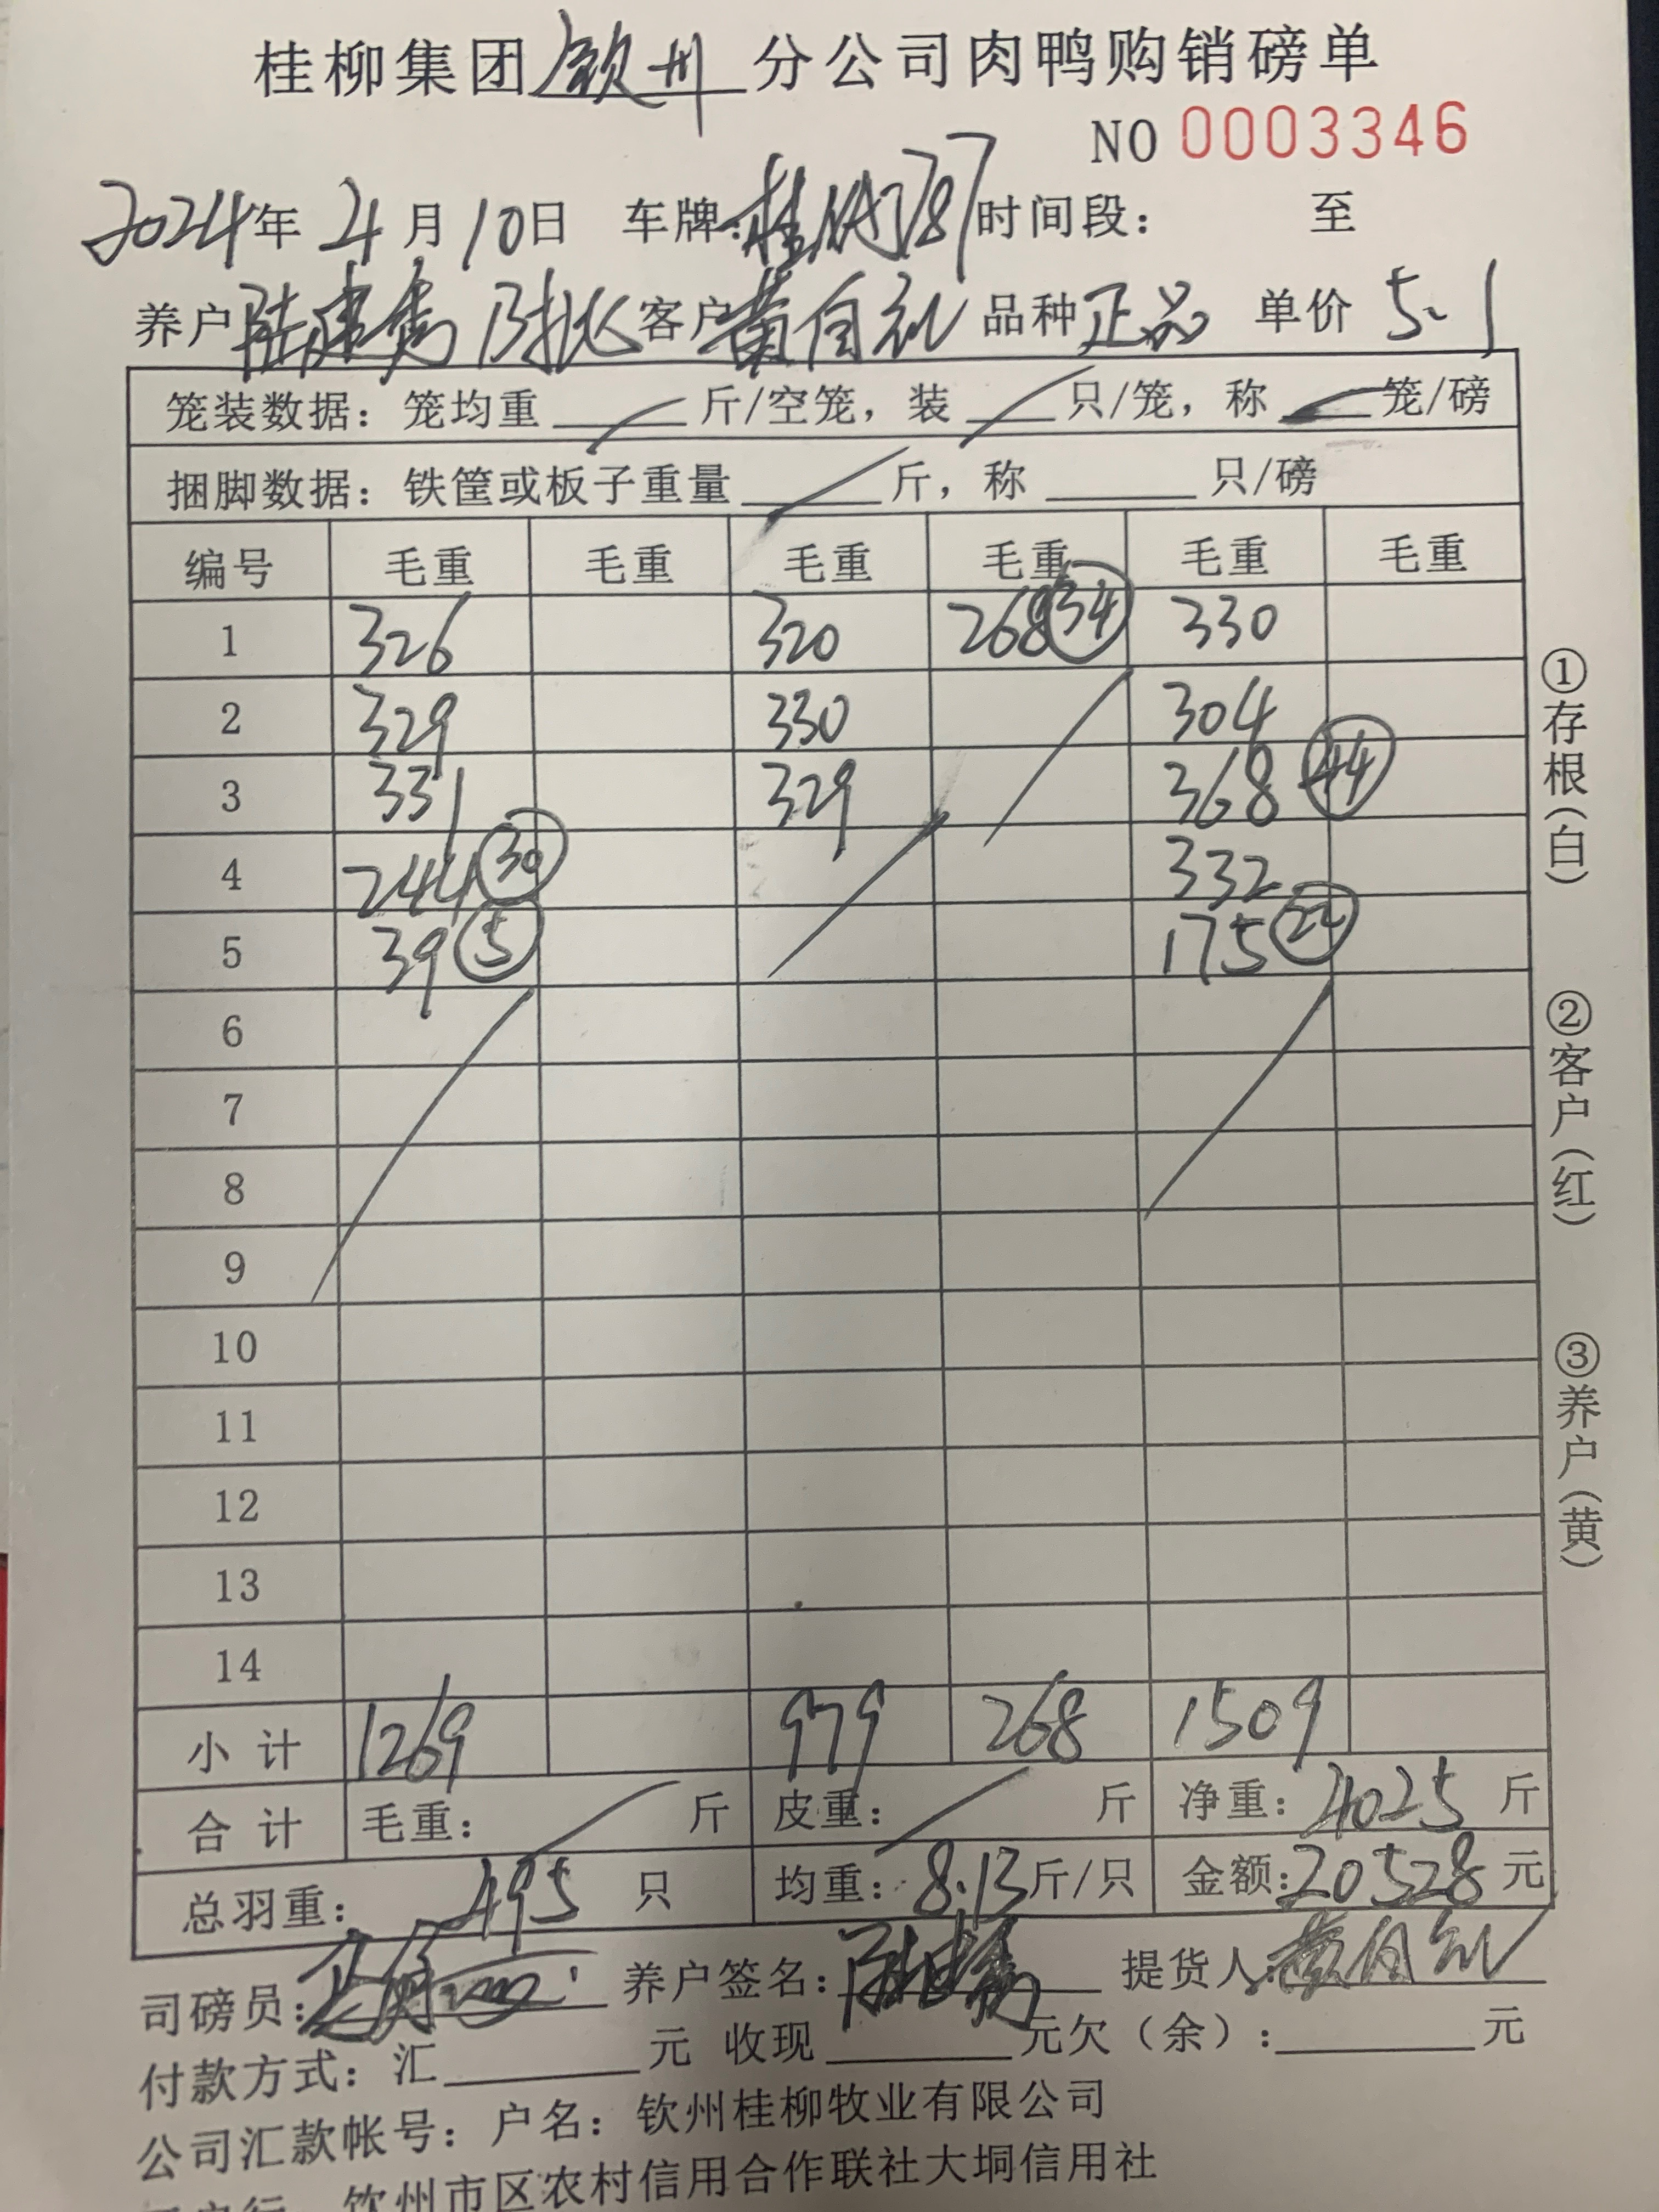 桂柳集团钦州分公司肉鸭购销磅单
NO 0003346
2024年4月10日 车牌: 时间段: 至
养户 客户黄自礼 品种正品 单价 5.1
笼装数据: 笼均重 斤/空笼, 装 只/笼, 称 笼/磅
捆脚数据: 铁筐或板子重量 斤, 称 只/磅
编号 毛重 毛重 毛重 毛重 毛重 毛重
1 326 320 268 34 330
2 329 330 304
3 331 329 368 44
4 244 30 332
5 39 5 175 22
6
7
8
9
10
11
12
13
14
小计 1269 979 268 1509
合计 毛重: 斤 皮重: 斤 净重: 4025 斤
总羽重: 495 只 均重: 8.13 斤/只 金额: 20528 元
司磅员: 养户签名: 提货人: 黄自礼
付款方式: 汇 元 收现 元欠(余): 元
公司汇款帐号: 户名: 钦州桂柳牧业有限公司
钦州市区农村信用合作联社大垌信用社
①存根(白)
②客户(红)
③养户(黄)